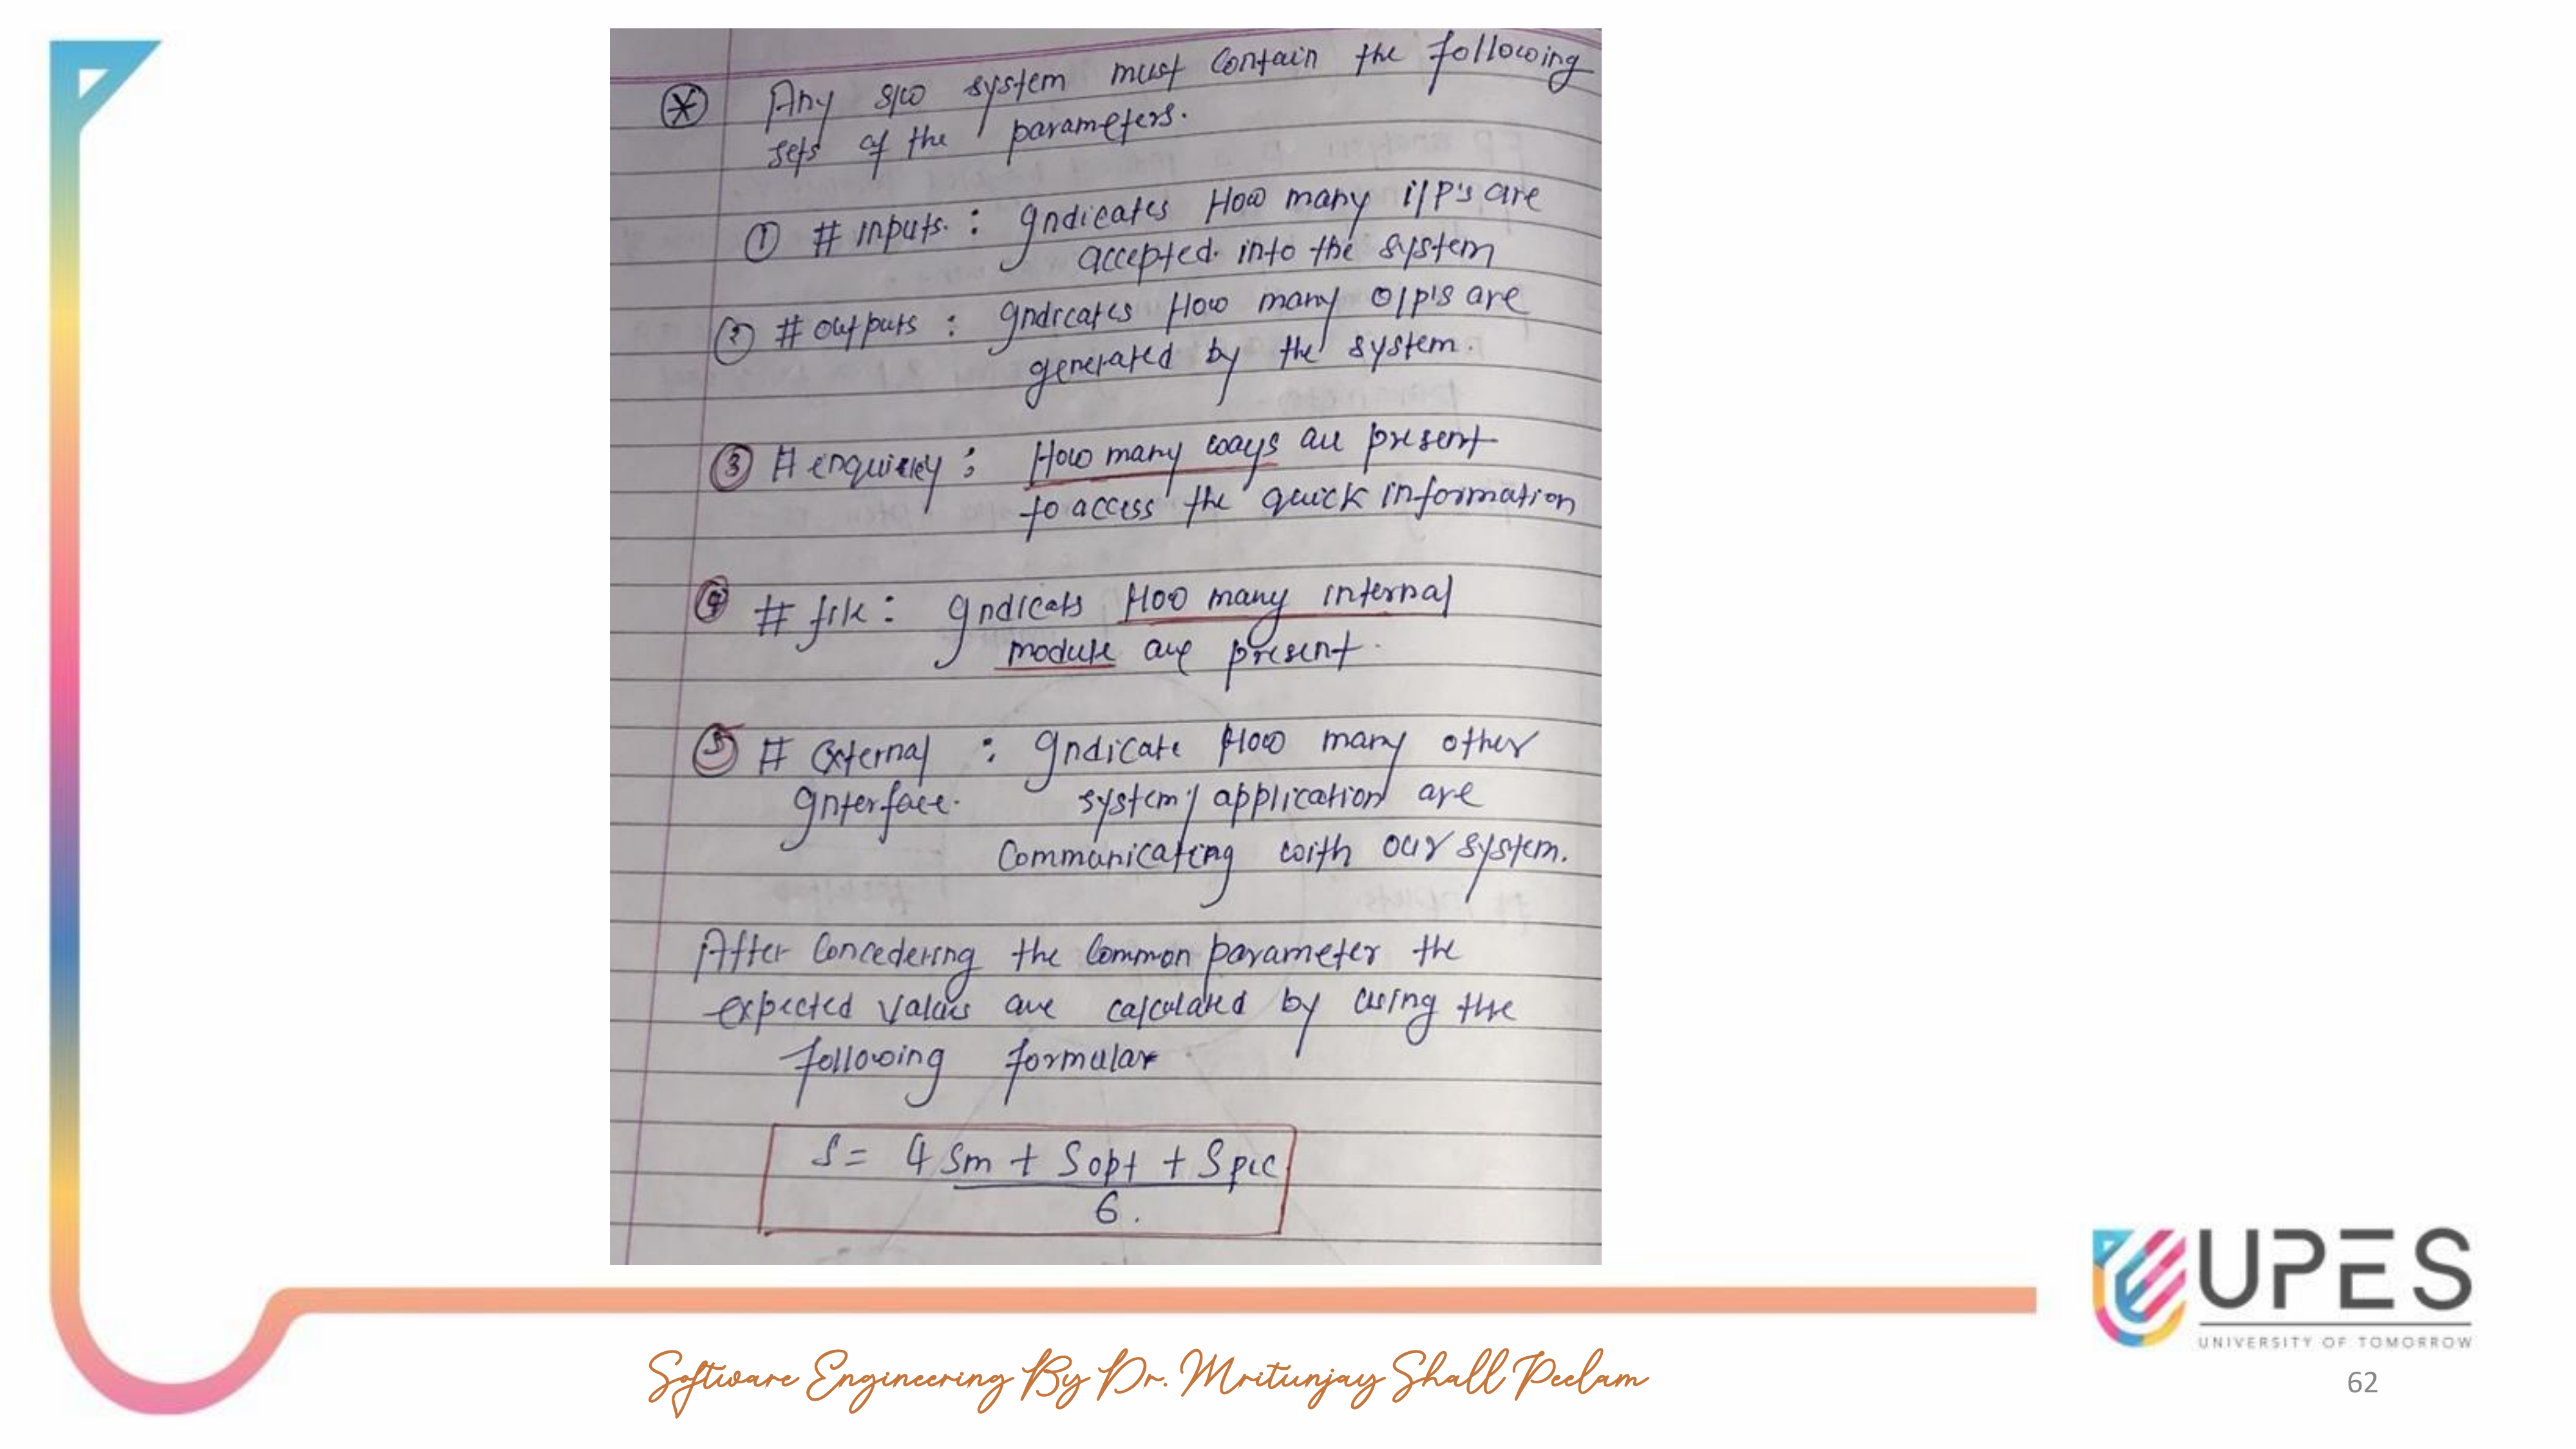 Any s/w system must contain the following
sets of the parameters.
① # inputs. : Indicates How many i/p's are
accepted. into the system
② # outputs : Indicates How many o/p's are
generated by the system.
③ # enquirey : How many ways are present
to access the quick information
④ # file : Indicats How many internal
module are present.
⑤ # External : Indicate How many other
Interface. system/ application are
Communicating with our system.
After Concedering the Common parameter the
expected values are calculated by using the
following formular
S = 4 Sm + Sopt + Spic
6.
UPES
UNIVERSITY OF TOMORROW
Software Engineering By Dr. Mritunjay Shall Peelam
62